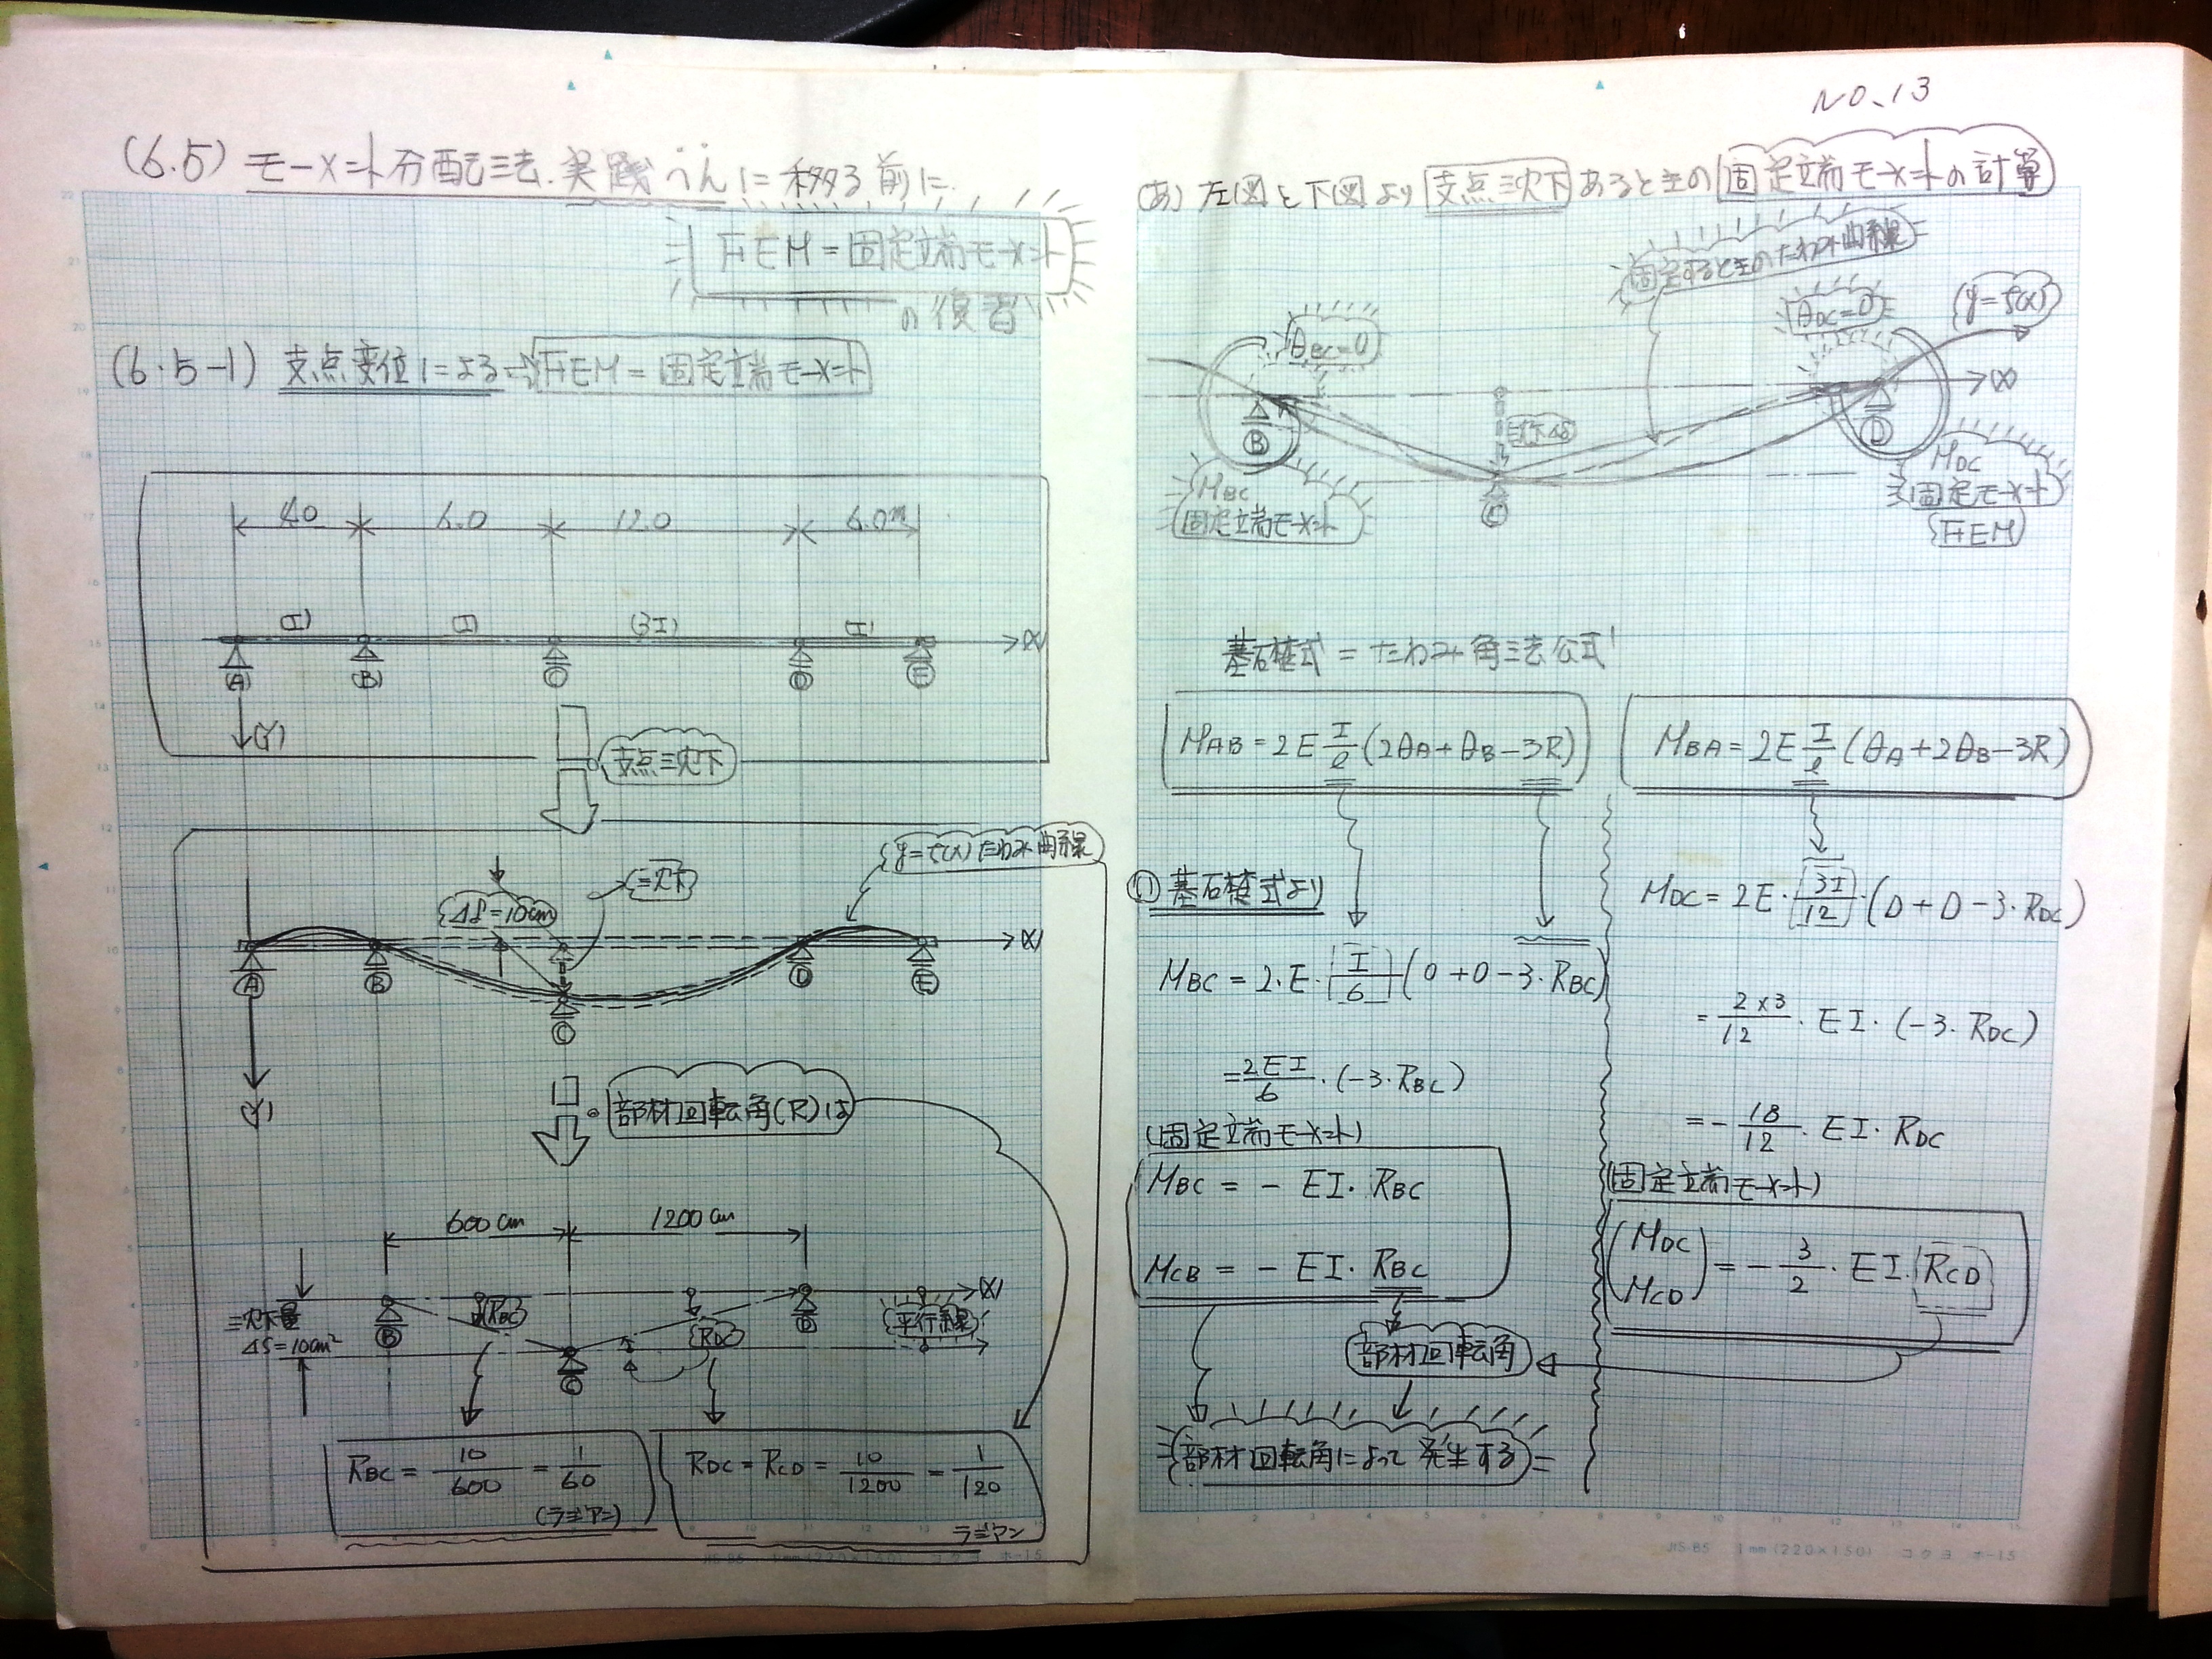 NO.13
(6.5) モーメント分配法.実践うんに移る前に.
FEM=固定端モーメント
の復習
(6.5-1) 支点変位による→FEM=固定端モーメント
4.0 6.0 12.0 6.0m
(I) (I) (3I) (I)
(X)
(A) (B) C D E
(Y)
支点沈下
y=f(x)たわみ曲線
沈下
Δδ=10cm
(X)
A B C D E
(Y)
部材回転角(R)は
600cm 1200cm
(X)
沈下量
Δδ=10cm²
B RBC C RDC D 平行線
RBC = 10/600 = 1/60
(ラジアン)
RDC = RCD = 10/1200 = 1/120
ラジアン
(あ) 左図と下図より支点沈下あるときの固定端モーメントの計算
固定するときのたわみ曲線
θBC=0
θDC=0
(y=f(x))
(X)
沈下Δδ
B C D
MBC
固定端モーメント
MDC
固定モーメント
FEM
基礎式=たわみ角法公式
MAB=2E I/l (2θA+θB-3R)
MBA=2E I/l (θA+2θB-3R)
基礎式より
MBC = 2.E.I/6 (0+0-3.RBC)
=2EI/6.(-3.RBC)
(固定端モーメント)
MBC = - EI. RBC
MCB = - EI. RBC
部材回転角
部材回転角によって発生する
MDC = 2E.3I/12.(0+0-3.RDC)
= 2×3/12. EI.(-3.RDC)
= - 18/12. EI. RDC
(固定端モーメント)
(MDC MCD) = - 3/2. EI.RCD
JIS B5 1mm(220×150) コクヨ ホ-15
JIS B5 1mm(220×150) コクヨ ホ-15